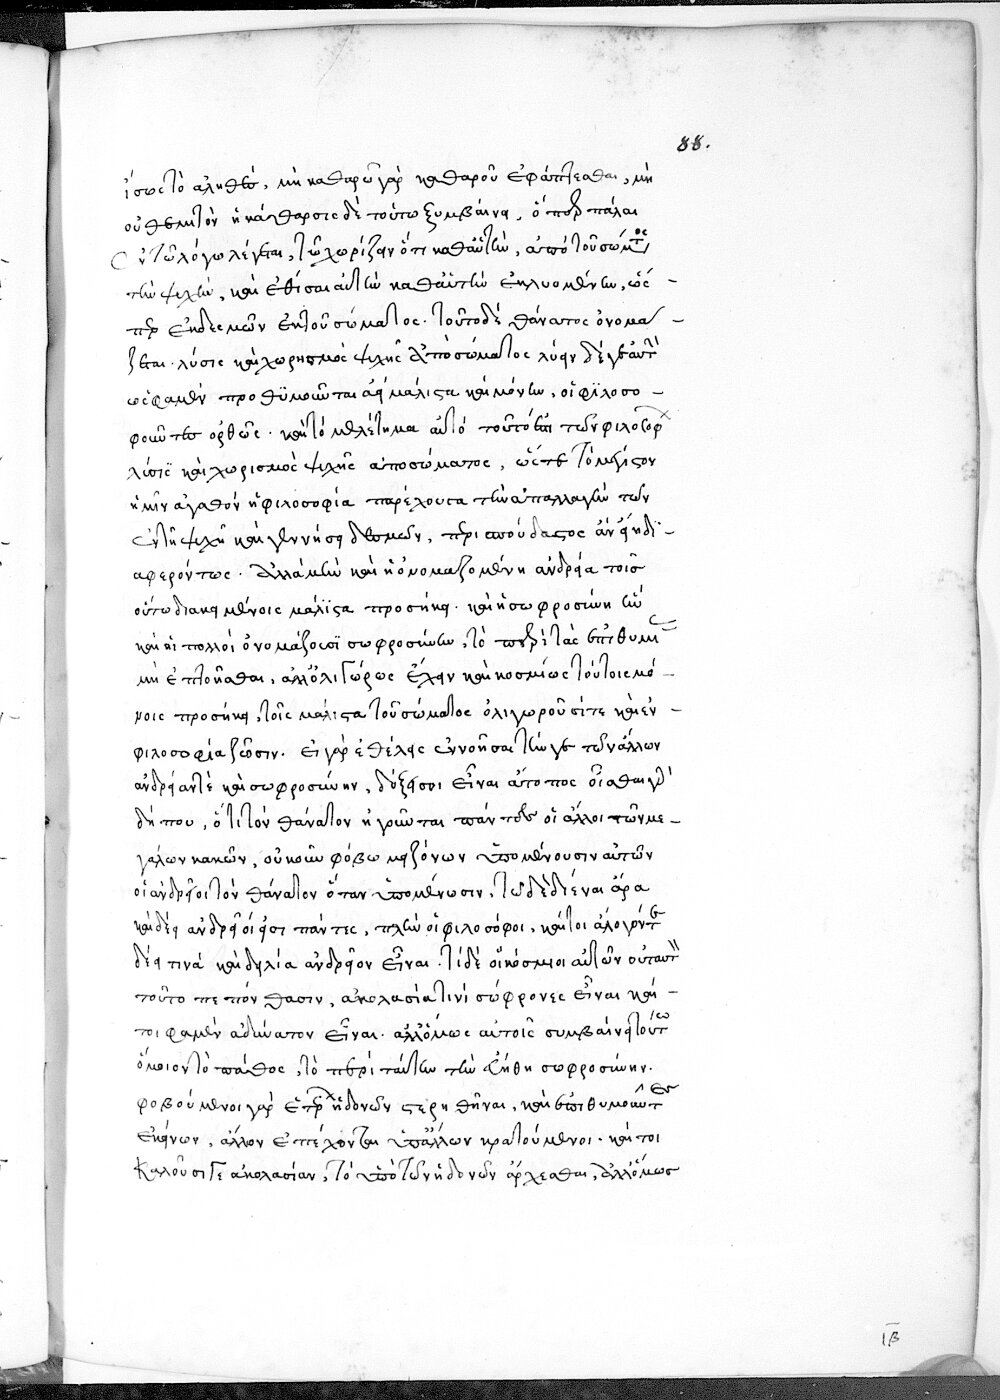 88.
ἴσως τὸ ἀληθές, μὴ καθαρῶ γὰρ καθαροῦ ἐφάπτεσθαι, μὴ
οὐ θεμιτὸν ἡ κάθαρσις δὲ τούτω ξυμβαίνει, ὅπερ πάλαι
ἐν τῶ λόγω λέγεται, τῶ χωρίζειν ὅτι καθ' αὑτὴν, ἀπὸ τοῦ σώματος
τὴν ψυχὴν, καὶ ἐθίσαι αὐτὴν καθ' αὑτὴν ἐκλυομένην, ὥς -
περ ἐκ δεσμῶν ἐκ τοῦ σώματος. τοῦτο δὲ θάνατος ὀνομά -
ζεται. λύσις καὶ χωρισμὸς ψυχῆς ἀπὸ σώματος λύειν δέ γε αὐτὴν
ὥς φαμὲν προθυμοῦνται ἀεὶ μάλιστα καὶ μόνοι, οἱ φιλοσο -
φοῦντες ὀρθῶς. καὶ τὸ μελέτημα αὐτὸ τοῦτό ἐστι τῶν φιλοσόφων
λύσις καὶ χωρισμὸς ψυχῆς ἀπὸ σώματος, ὥστε τὸ μέγιστον
ἡμῖν ἀγαθὸν ἡ φιλοσοφία παρέχουσα τὴν ἀπαλλαγὴν τῶν
ἐν τῆ ψυχῆ καὶ γεννήσει δεσμῶν, περισπούδαστος ἂν εἴη δι -
αφερόντως. ἀλλὰ μὴν καὶ ἡ ὀνομαζομένη ἀνδρεία τοῖς
οὕτω διακειμένοις μάλιστα προσήκει. καὶ ἡ σωφροσύνη ἣν
καὶ οἱ πολλοὶ ὀνομάζουσι σωφροσύνην, τὸ περὶ τὰς ἐπιθυμίας
μὴ ἐπτοῆσθαι, ἀλλ' ὀλιγώρως ἔχειν καὶ κοσμίως τούτοις μό -
νοις προσήκει, τοῖς μάλιστα τοῦ σώματος ὀλιγωροῦσί τε καὶ ἐν -
φιλοσοφία ζῶσιν. εἰ γὰρ ἐθέλεις ἐννοῆσαι τήν γε τῶν ἄλλων
ἀνδρείαν τὲ καὶ σωφροσύνην, δόξει σοι εἶναι ἄτοπος οἶσθα γὰρ
δή που, ὅτι τὸν θάνατον ἡγοῦνται πάντες οἱ ἄλλοι τῶν με -
γάλων κακῶν, οὐκοῦν φόβω μειζόνων ὑπομένουσιν αὐτῶν
οἱ ἀνδρεῖοι τὸν θάνατον ὅταν ὑπομένωσιν, τῶ δεδιέναι ἄρα
καὶ δέει ἀνδρεῖοί εἰσι πάντες, πλὴν οἱ φιλόσοφοι, καίτοι ἄλογόν γε
δέει τινὰ καὶ δειλία ἀνδρεῖον εἶναι. τί δὲ οἱ κόσμιοι αὐτῶν οὐ ταυτὸν
τοῦτο πεπόνθασιν, ἀκολασία τινὶ σώφρονες εἶναι καί -
τοι φαμὲν ἀδύνατον εἶναι. ἀλλ' ὅμως αὐτοῖς συμβαίνει τούτω
ὅμοιον τὸ πάθος, τὸ περὶ ταύτην τὴν εὐήθη σωφροσύνην.
φοβούμενοι γὰρ ἑτέρων ἡδονῶν στερηθῆναι, καὶ ἐπιθυμοῦντες
ἐκείνων, ἄλλων ἀπέχονται ὑπ' ἄλλων κρατούμενοι. καίτοι
καλοῦσί γε ἀκολασίαν, τὸ ὑπὸ τῶν ἡδονῶν ἄρχεσθαι, ἀλλ' ὅμως
ιβ